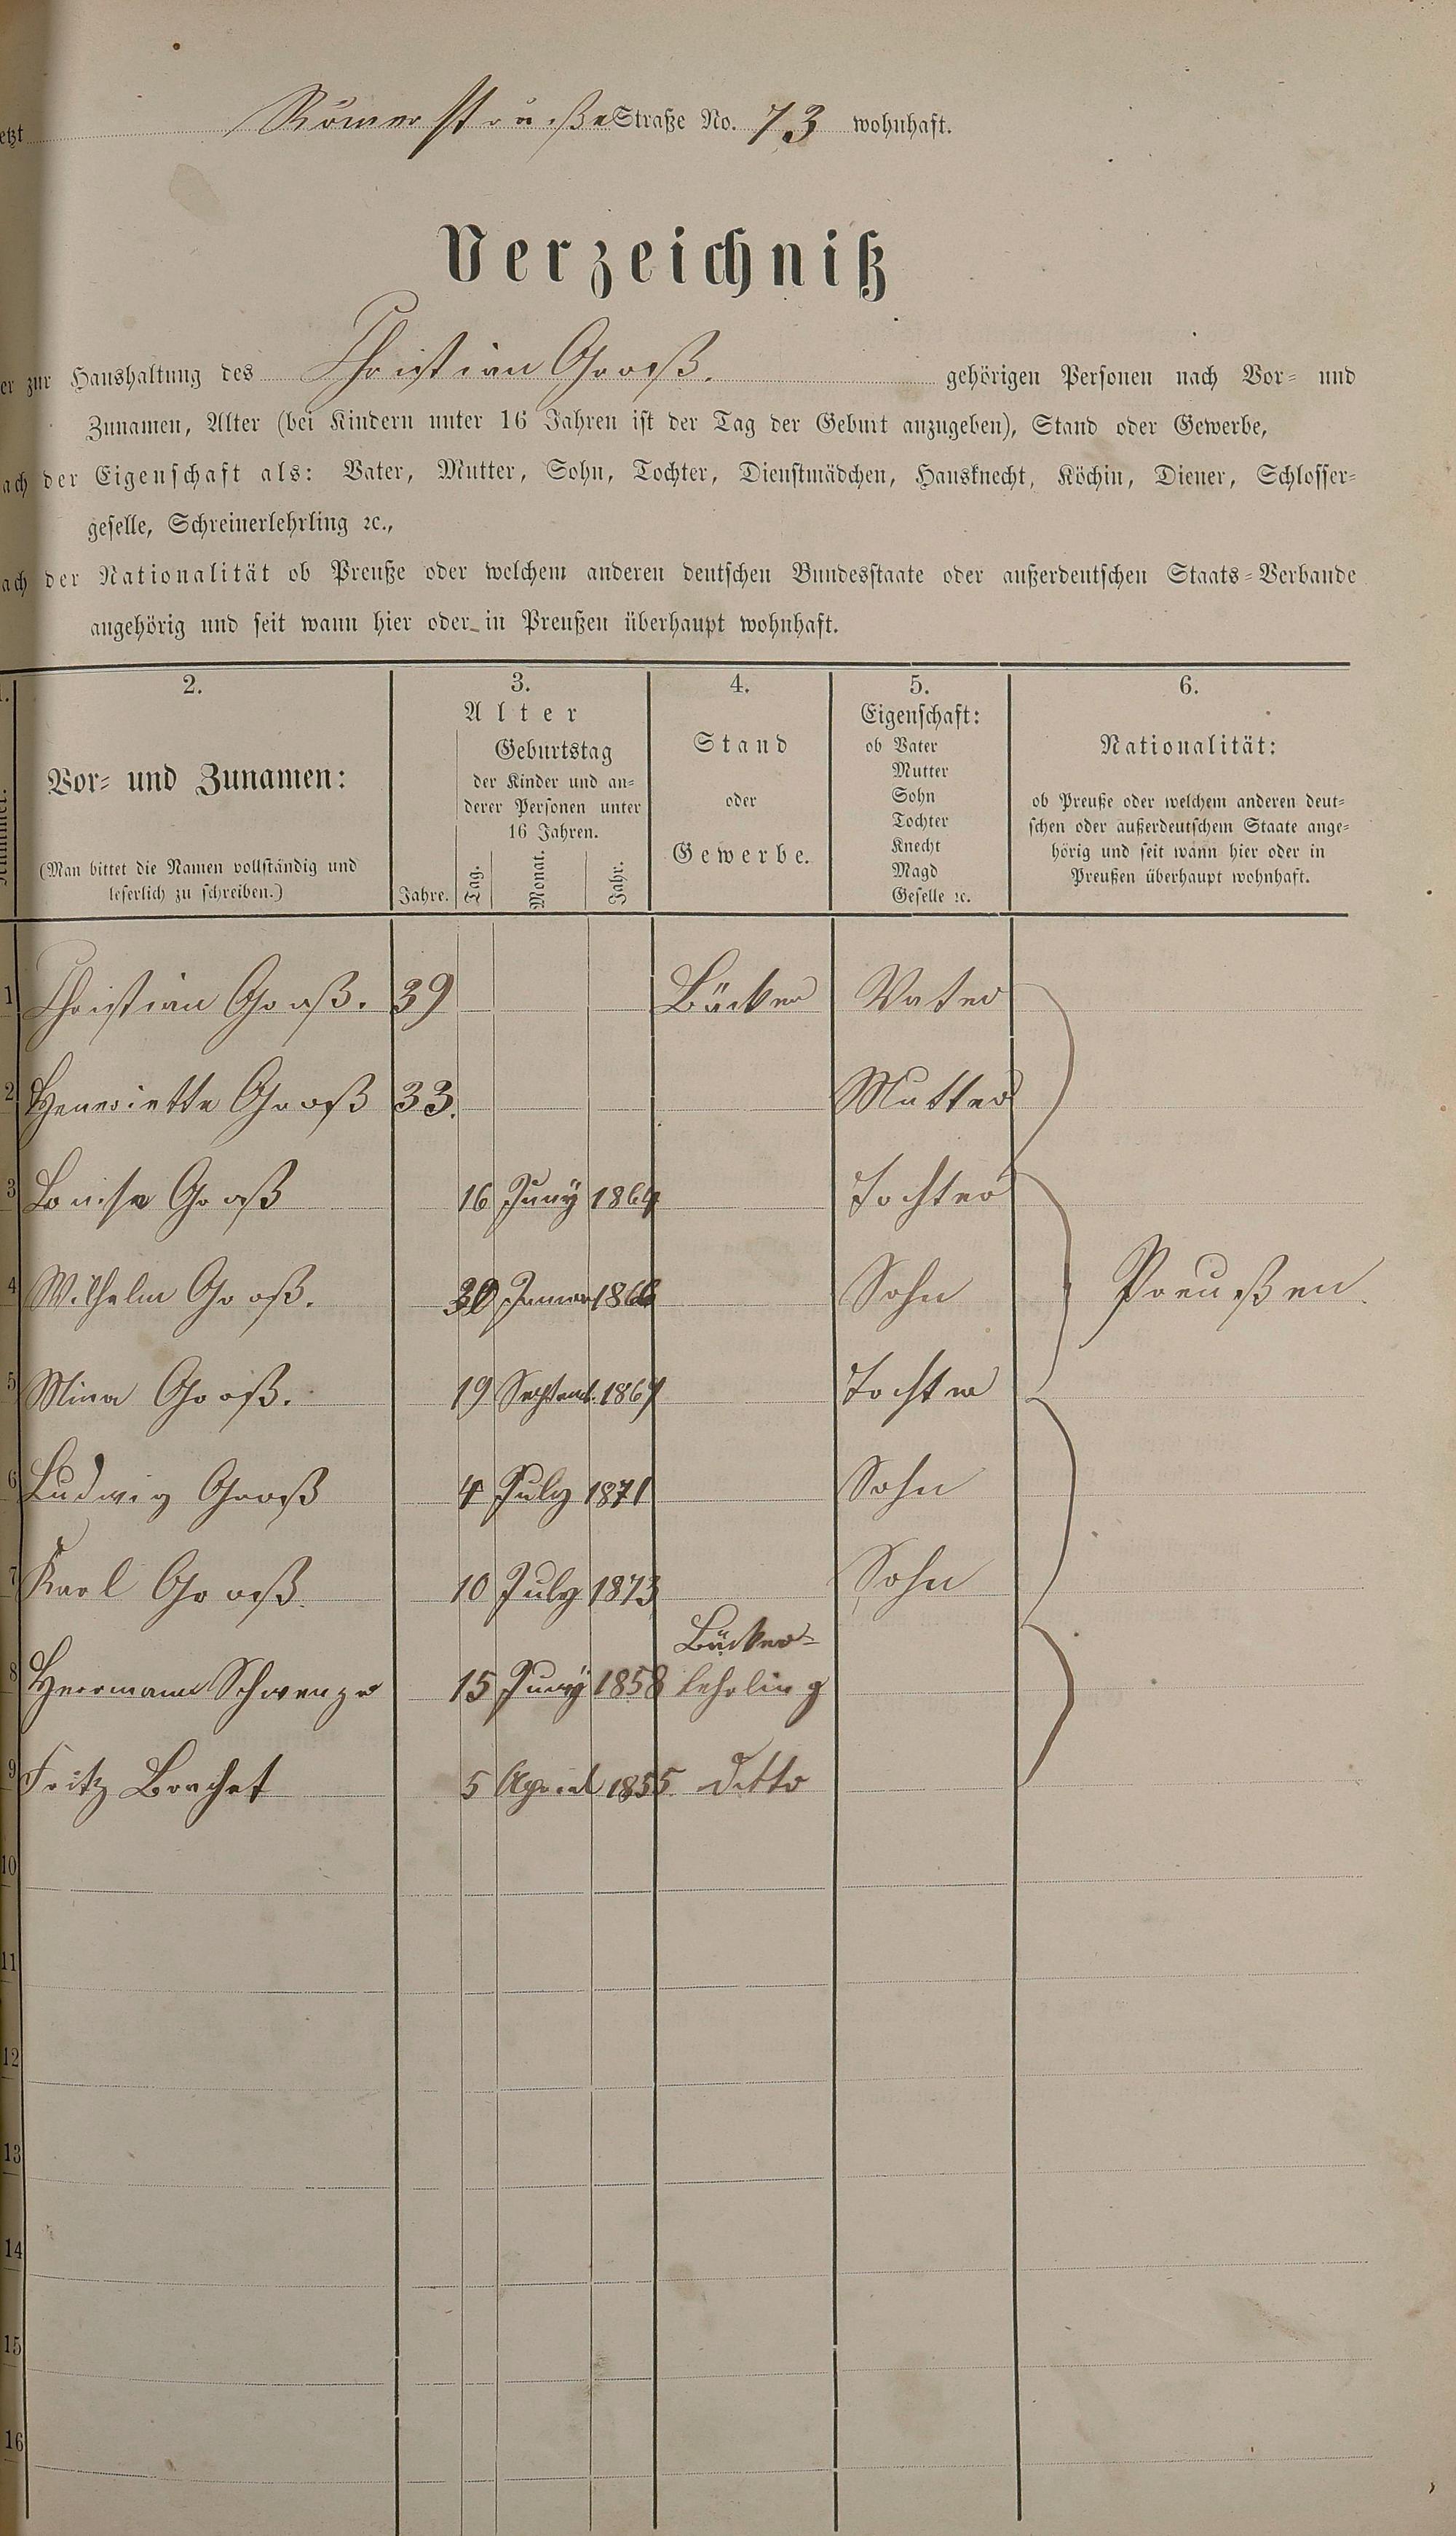 etzt Römerstraße Straße No. 73 wohnhaft.
Verzeichniß
er zur Haushaltung des Christian Groß. gehörigen Personen nach Vor- und
Zunamen, Alter (bei Kindern unter 16 Jahren ist der Tag der Geburt anzugeben), Stand oder Gewerbe,
ach der Eigenschaft als: Vater, Mutter, Sohn, Tochter, Dienstmädchen, Hausknecht, Köchin, Diener, Schlosser-
geselle, Schreinerlehrling ꝛc.,
ach der Nationalität ob Preuße oder welchem anderen deutschen Bundesstaate oder außerdeutschen Staats-Verbande
angehörig und seit wann hier oder in Preußen überhaupt wohnhaft.
1. 2. 3. 4. 5. 6.
Vor- und Zunamen:
(Man bittet die Namen vollständig und
leserlich zu schreiben.)
Alter
Jahre.
Geburtstag
der Kinder und an-
derer Personen unter
16 Jahren.
Tag. Monat. Jahr.
Stand
oder
Gewerbe.
Eigenschaft:
ob Vater
Mutter
Sohn
Tochter
Knecht
Magd
Geselle ꝛc.
Nationalität:
ob Preuße oder welchem anderen deut-
schen oder außerdeutschem Staate ange-
hörig und seit wann hier oder in
Preußen überhaupt wohnhaft.
1 Christian Groß. 39 Bäcker Vater
2 Henriette Groß 33. Mutter
3 Louise Groß 16 Juny 1864 Tochter
4 Wilhelm Groß. 30 Januar 1866 Sohn Preußen
5 Mina Groß. 19 Septemb. 1867 Tochter
6 Ludwig Groß 4 July 1871 Sohn
7 Karl Groß. 10 July 1873 Sohn
Bäcker-
8 Herrmann 15 Juny 1858 lehrling
9 Fritz Borchet 5 April 1855 ditto
10
11
12
13
14
15
16